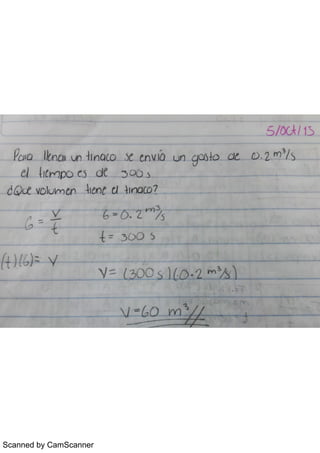 5/oct/13
Para llenar un tinaco se envía un gasto de 0.2 m³/s
el tiempo es de 300 s
¿Que volumen tiene el tinaco?
G = V/t G = 0.2 m³/s
t = 300 s
(t)(G) = V
V = (300 s)(0.2 m³/s)
V = 60 m³//
Scanned by CamScanner